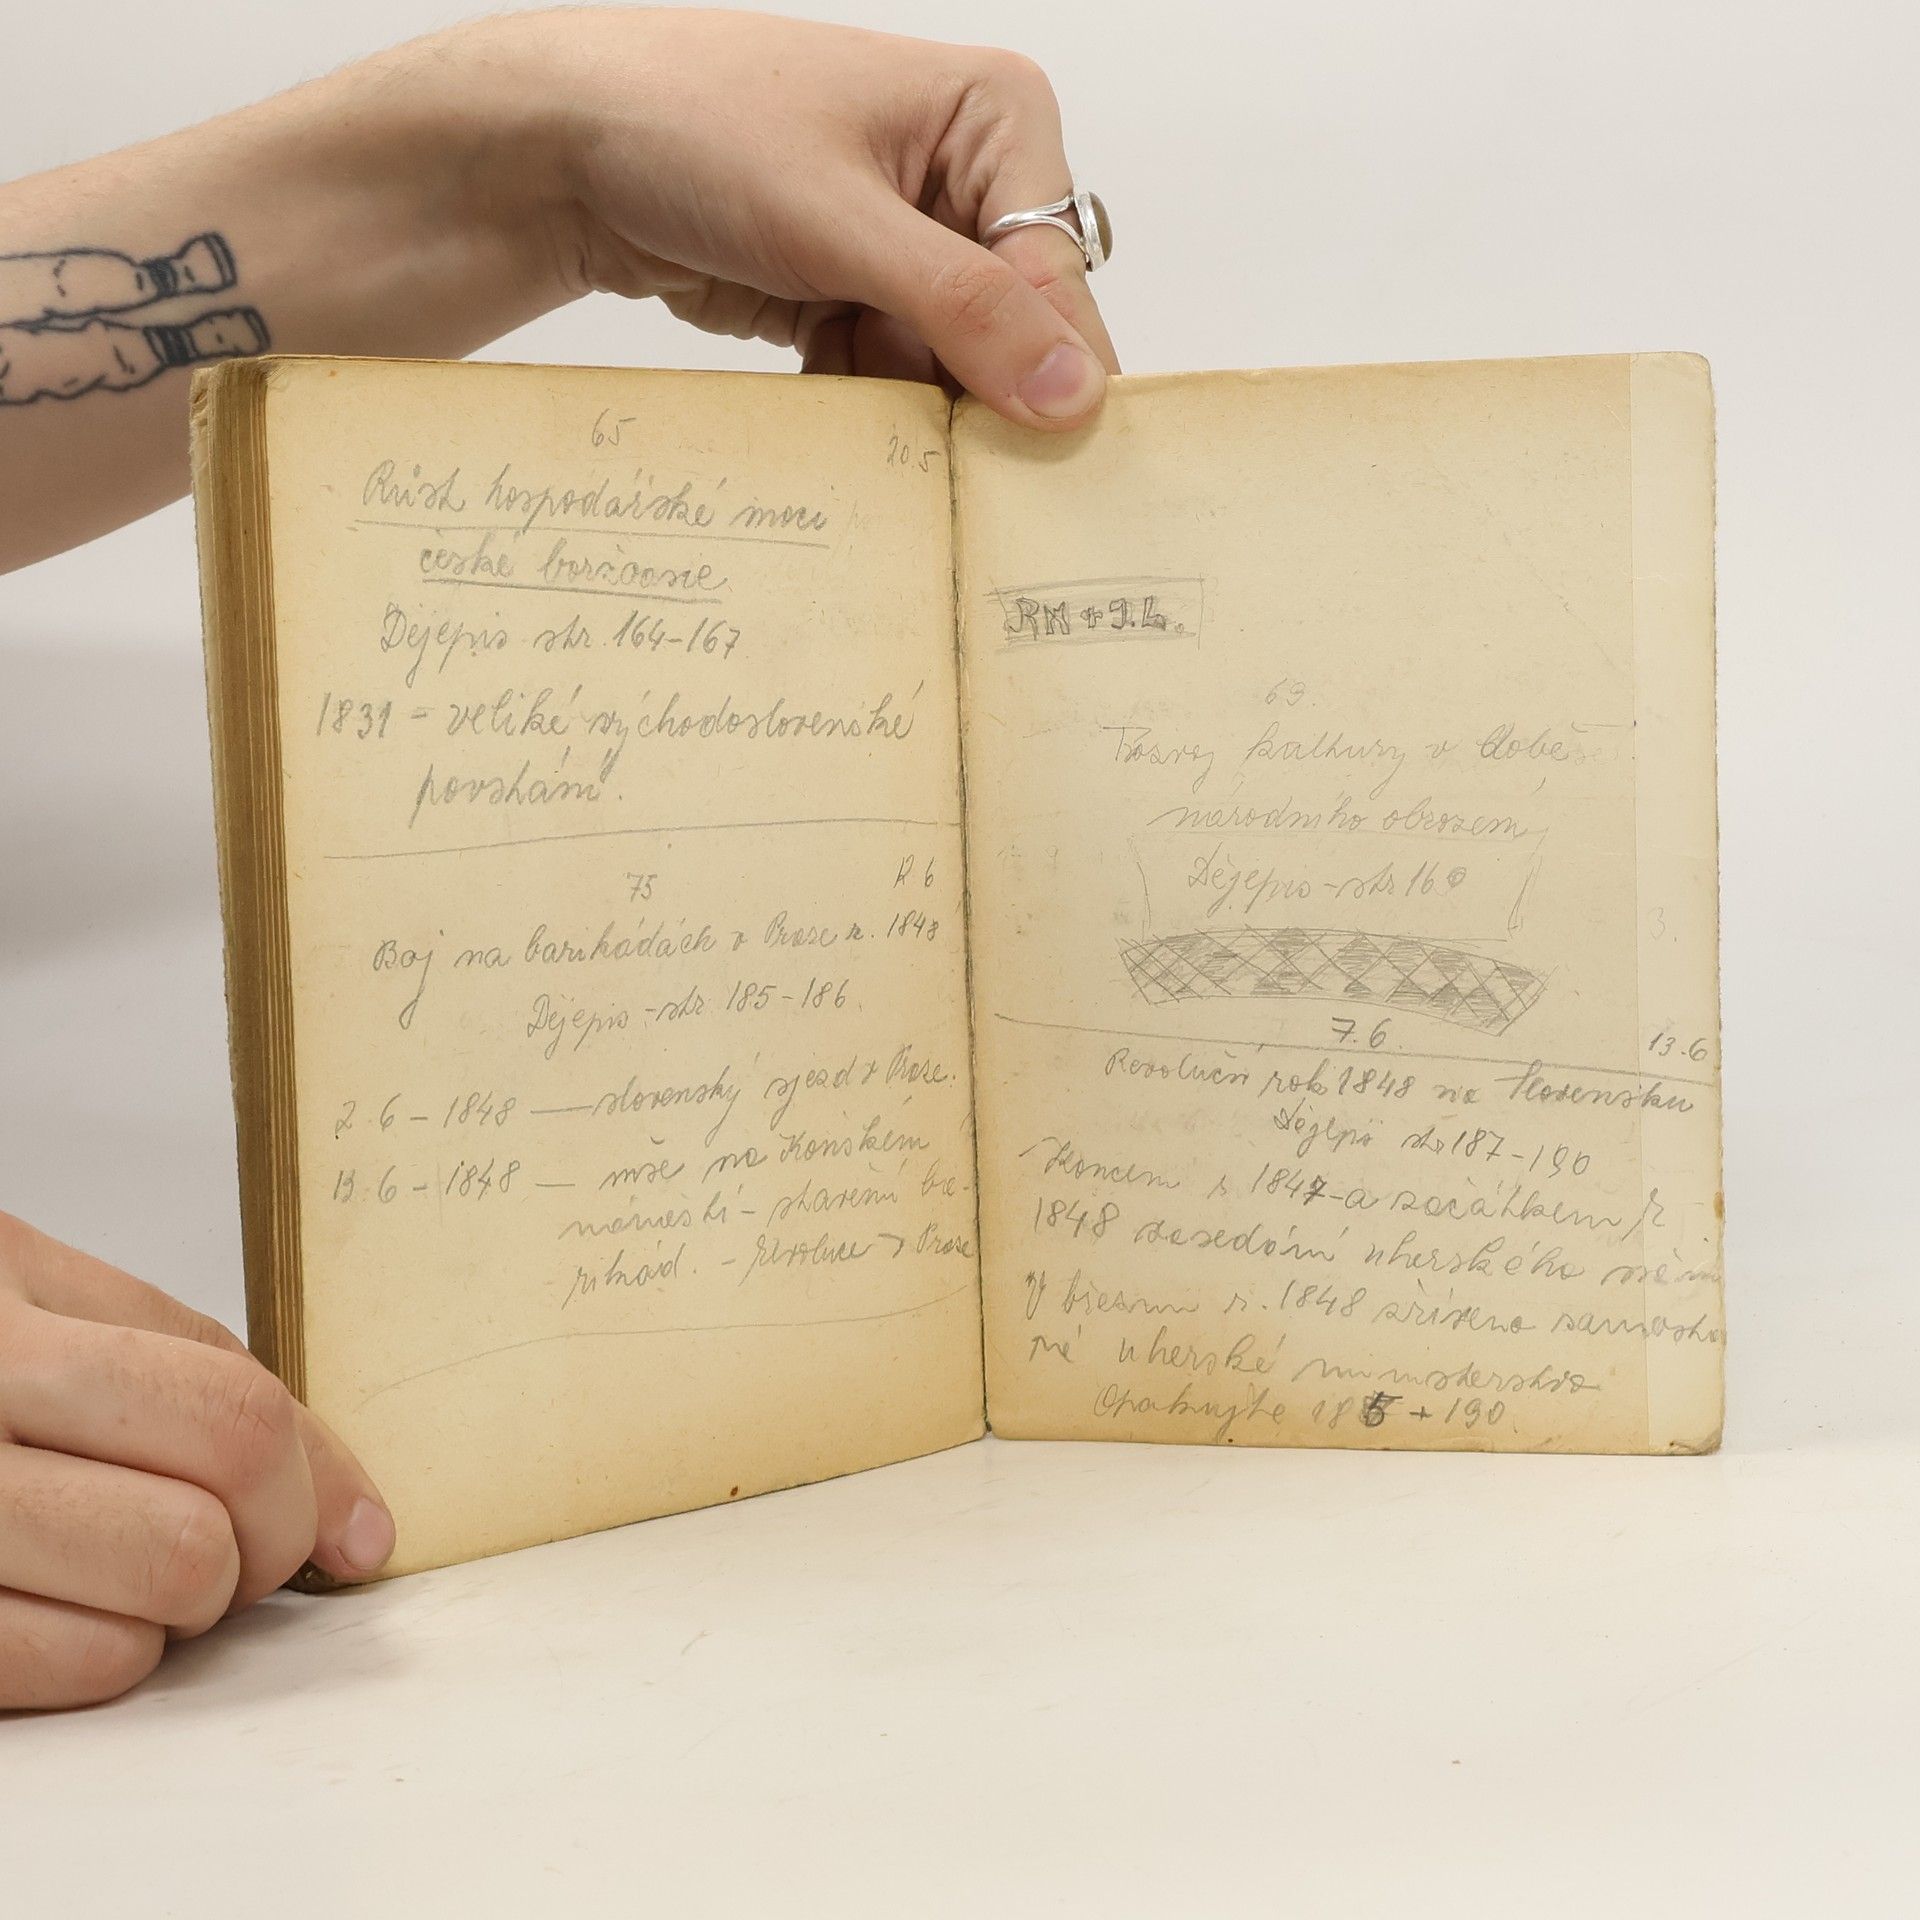 65
20.5
Růst hospodářské moci
české buržoasie
Dějepis str. 164-167
1831 - veliké východoslovenské
povstání.
75
12.6
Boj na barikádách v Praze r. 1848
Dějepis - str. 185-186.
2.6 - 1848 — slovanský sjezd v Praze.
12.6 - 1848 — mše na Koňském
náměstí - stavění ba-
rikád. - Revoluce v Praze
RM + J.L.
69.
Rozvoj kultury v době
národního obrození
Dějepis - str 160
7.6.
13.6
Revoluční rok 1848 na Slovensku
Dějepis str 187-190
Koncem r 1847 - a začátkem r
1848 zasedání uherského
V březnu r. 1848 zřízeno samosta
né uherské ministerstvo
Opakujte 185 + 190